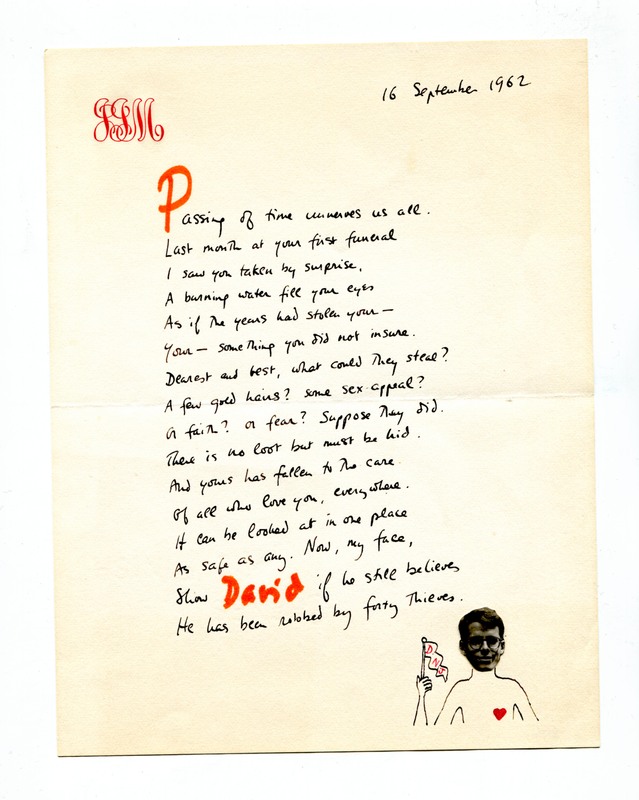 JIM
16 September 1962
Passing of time unnerves us all.
Last month at your first funeral
I saw you taken by surprise,
A burning water fill your eyes
As if the years had stolen your —
Your — something you did not insure.
Dearest and best, what could they steal?
A few gold hairs? some sex-appeal?
Or faith? or fear? Suppose they did.
There is no loot but must be hid.
And yours has fallen to the care
Of all who love you, everywhere.
It can be looked at in one place
As safe as any. Now, my face,
Show David if he still believes
He has been robbed by forty thieves.
DNJ